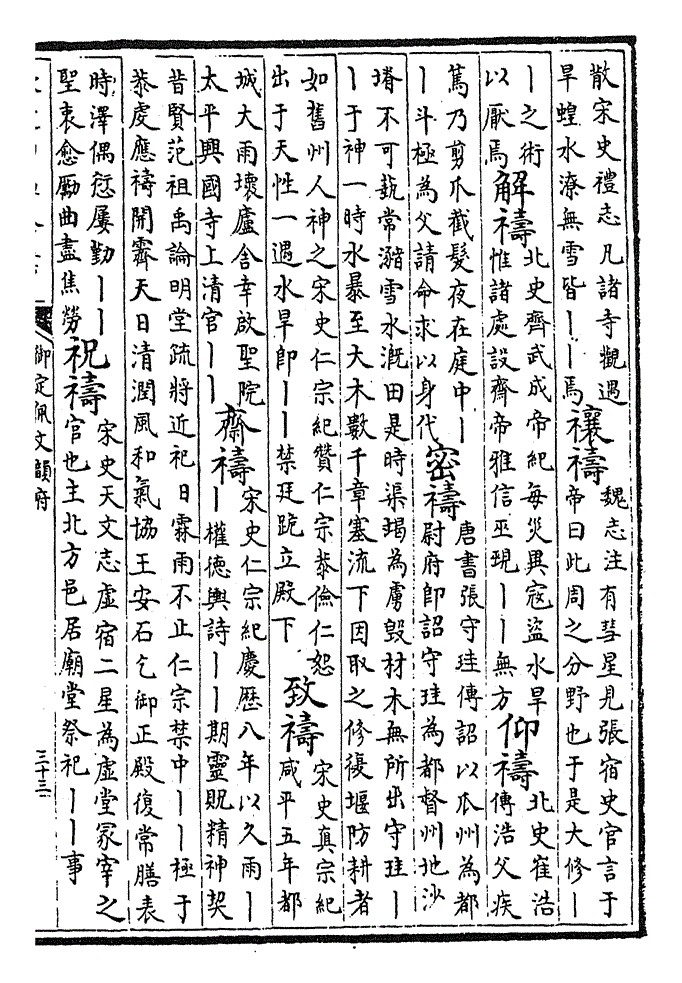 散宋史禮志凡諸寺觀遇
旱蝗水潦無雪皆丨丨焉
禳禱
魏志注有彗星見張宿史官言于
帝曰此周之分野也于是大修丨
丨之術
以厭焉
解禱
北史齊武成帝紀每災異寇盜水旱
惟諸處設齋帝雅信巫覡丨丨無方
仰禱
北史崔浩
傳浩父疾
篤乃剪爪截髮夜在庭中丨
丨斗極為父請命求以身代
密禱
唐書張守珪傳詔以瓜州為都
尉府卽詔守珪為都督州地沙
塉不可蓺常瀦雪水溉田是時渠堨為虜毀材木無所出守珪丨
丨于神一時水暴至大木數千章塞流下因取之修復堰防耕者
如舊州人神之宋史仁宗紀贊仁宗恭儉仁恕
出于天性一遇水旱卽丨丨禁廷跪立殿下
致禱
宋史真宗紀
咸平五年都
城大雨壞廬舍幸啟聖院
太平興國寺上清官丨丨
齋禱
宋史仁宗紀慶歷八年以久雨丨
丨權德輿詩丨丨期靈貺精神契
昔賢范祖禹論明堂疏將近祀日霖雨不止仁宗禁中丨丨極于
恭虔應禱開霽天日清潤風和氣協王安石乞御正殿復常膳表
時澤偶愆屢勤丨丨
聖衷愈勵曲盡焦勞
祝禱
宋史天文志虛宿二星為虛堂冢宰之
官也主北方邑居廟堂祭祀丨丨事
御定佩文韻府
三十三